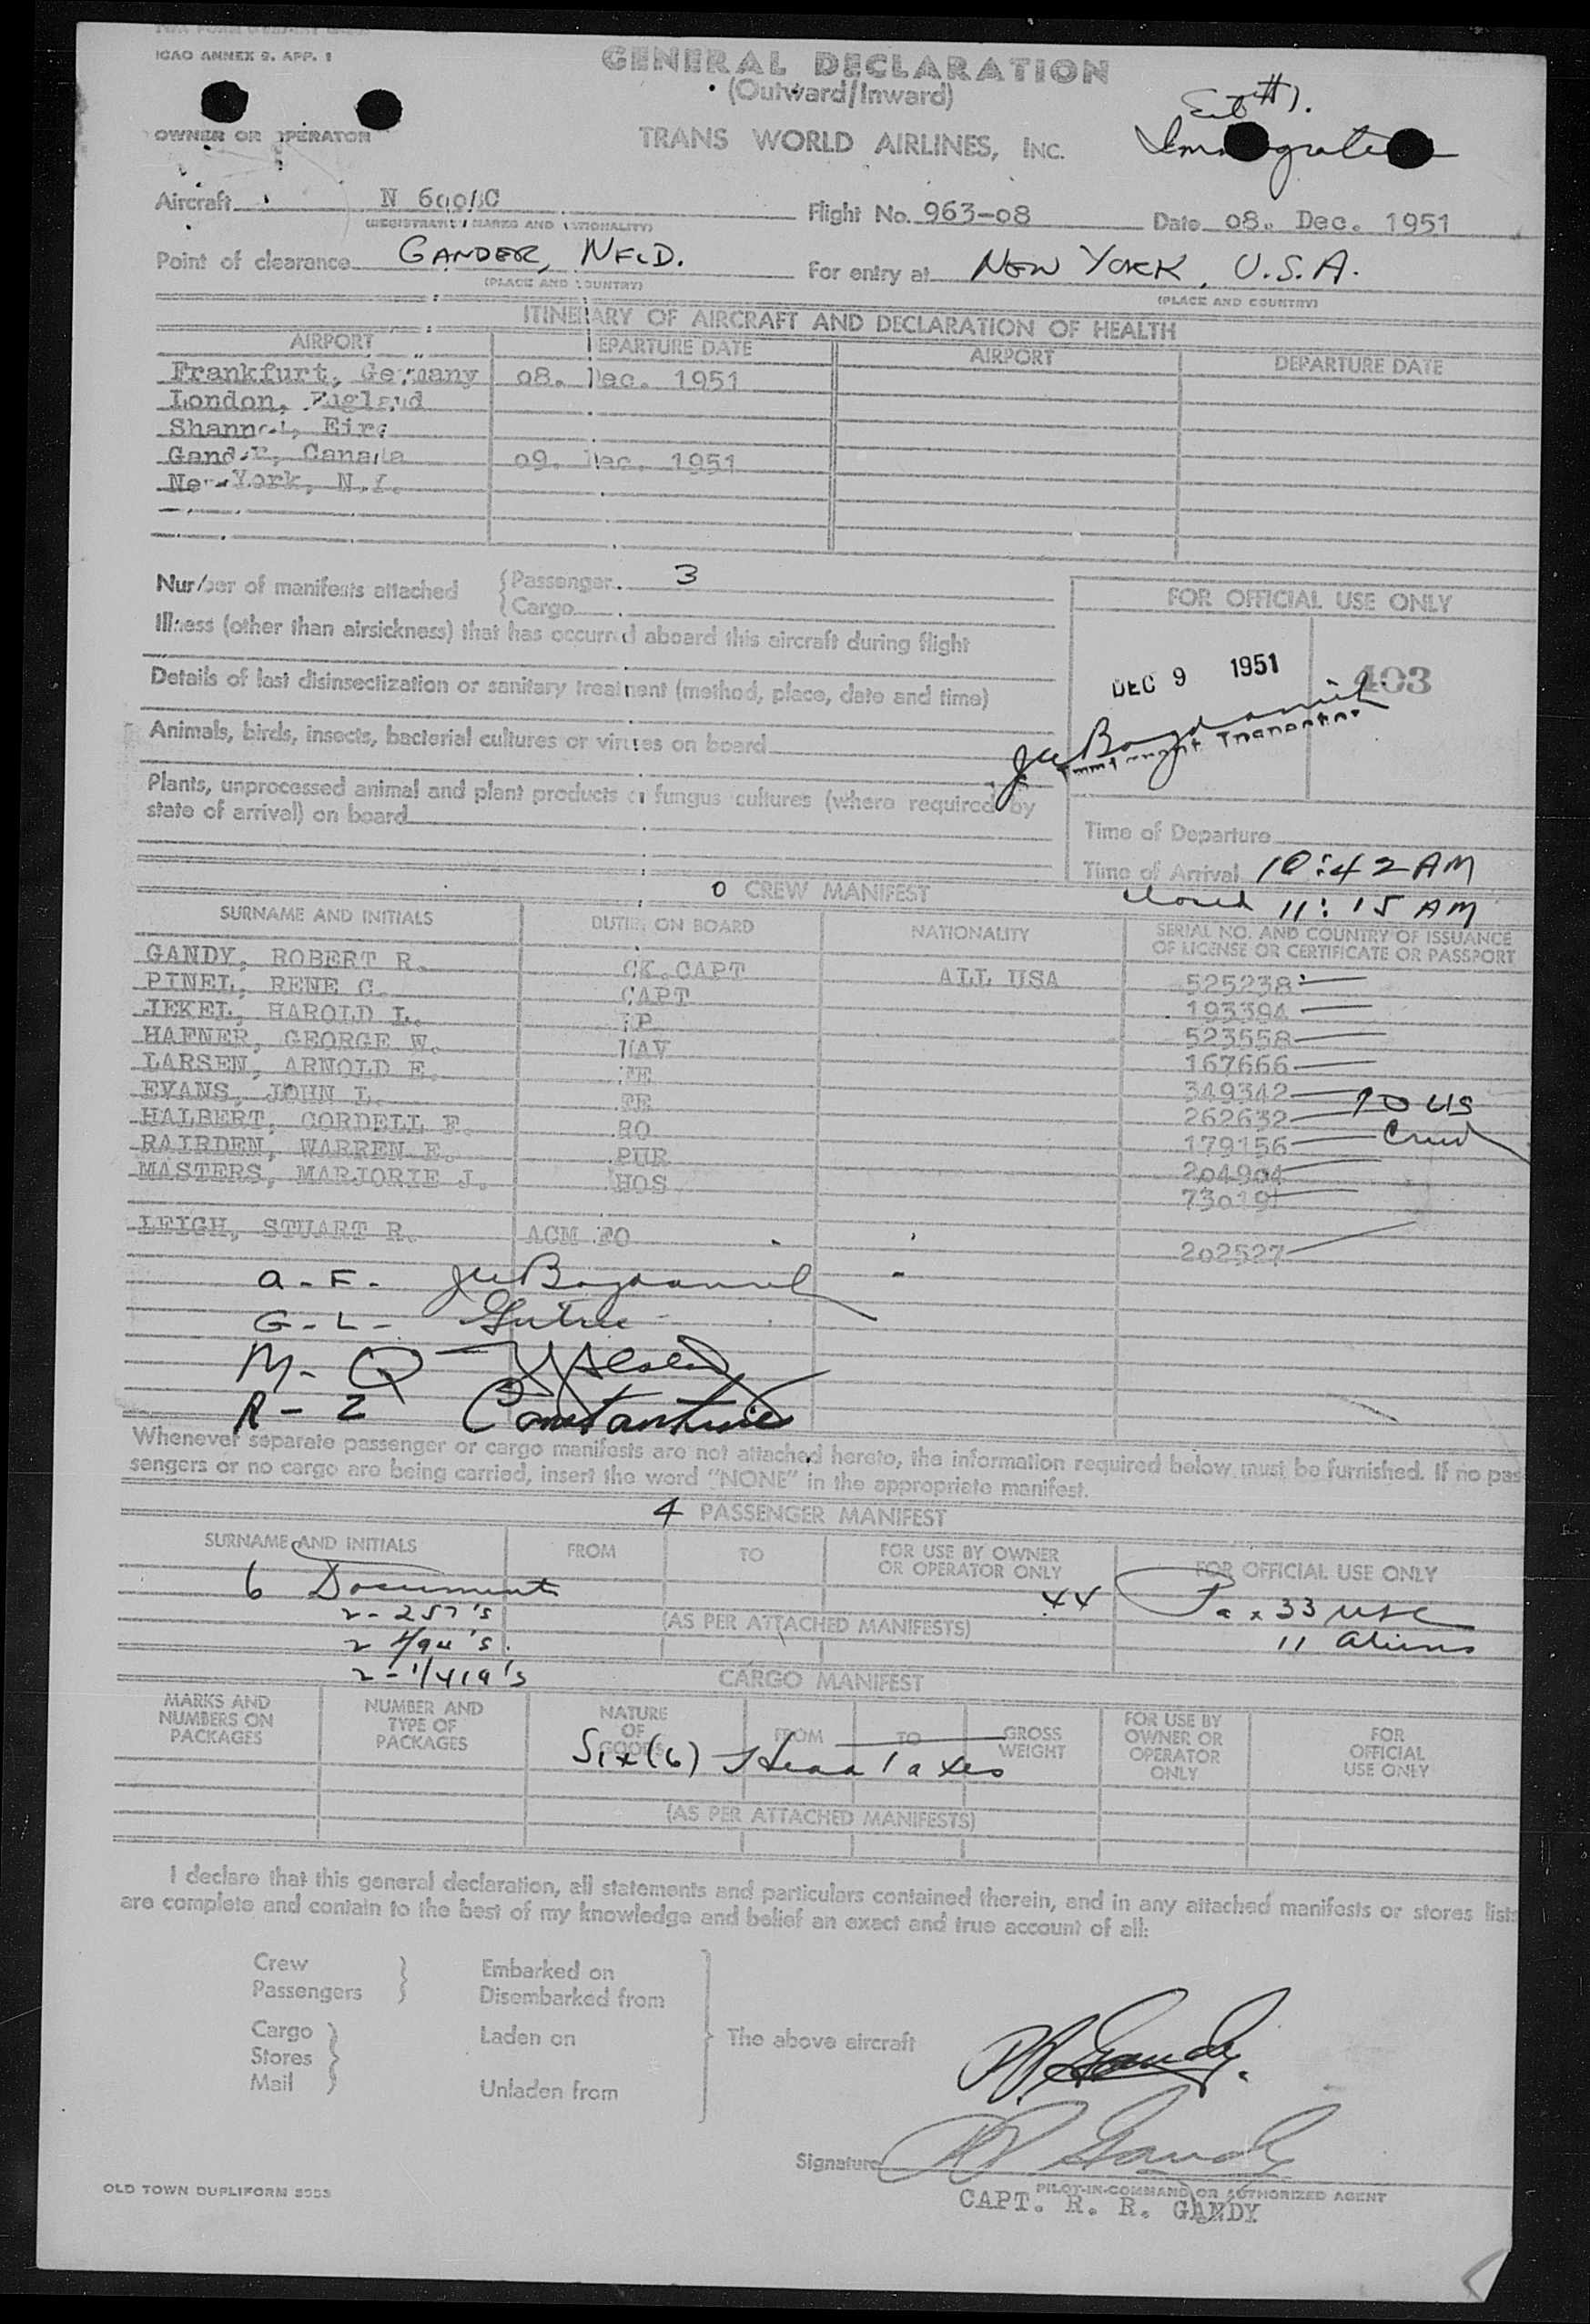 ICAO ANNEX 9. APP. 1
GENERAL DECLARATION
(Outward/Inward)
OWNER OR OPERATOR
TRANS WORLD AIRLINES, INC.
Immigration
Aircraft N
(REGISTRATION MARKS AND NATIONALITY)
Flight No. 963-08
Date 08. Dec. 1951
Point of clearance GANDER, NFLD.
(PLACE AND COUNTRY)
For entry at NEW YORK, U.S.A.
(PLACE AND COUNTRY)
ITINERARY OF AIRCRAFT AND DECLARATION OF HEALTH
AIRPORT DEPARTURE DATE AIRPORT DEPARTURE DATE
Frankfurt, Germany 08. Dec. 1951
London, England
Shannon, Eire
Gander, Canada 09. Dec. 1951
New York, N.Y.
Number of manifests attached { Passenger 3
Cargo
Illness (other than airsickness) that has occurred aboard this aircraft during flight
Details of last disinsectization or sanitary treatment (method, place, date and time)
Animals, birds, insects, bacterial cultures or viruses on board
Plants, unprocessed animal and plant products or fungus cultures (where required by
state of arrival) on board
FOR OFFICIAL USE ONLY
DEC 9 1951
403
Immigrant Inspector
Time of Departure
Time of Arrival 10:42 AM
11:15 AM
0 CREW MANIFEST
SURNAME AND INITIALS DUTIES ON BOARD NATIONALITY SERIAL NO. AND COUNTRY OF ISSUANCE
OF LICENSE OR CERTIFICATE OR PASSPORT
GANDY, ROBERT R. CK.CAPT ALL USA 525238
PINEL, RENE C. CAPT 193394
JEKEL, HAROLD L. FP 523558
HAFNER, GEORGE W. NAV 167666
LARSEN, ARNOLD E. FE 349342
EVANS, JOHN L. FE 262632
HALBERT, CORDELL F. RO 179156
RAIRDEN, WARREN E. PUR 204904
MASTERS, MARJORIE J. HOS 73019
10 US
Crew
LEIGH, STUART R. ACM FO 202527
A - F -
G - L -
M - Q
R - Z Constantine
Whenever separate passenger or cargo manifests are not attached hereto, the information required below must be furnished. If no pas
sengers or no cargo are being carried, insert the word "NONE" in the appropriate manifest.
4 PASSENGER MANIFEST
SURNAME AND INITIALS FROM TO FOR USE BY OWNER
OR OPERATOR ONLY
FOR OFFICIAL USE ONLY
6 Documents
2 - 257's
2 - 1/419's
(AS PER ATTACHED MANIFESTS)
44 Pax 33 USC
11 Aliens
CARGO MANIFEST
MARKS AND
NUMBERS ON
PACKAGES
NUMBER AND
TYPE OF
PACKAGES
NATURE
OF
GOODS
FROM TO GROSS
WEIGHT
FOR USE BY
OWNER OR
OPERATOR
ONLY
FOR
OFFICIAL
USE ONLY
Six (6) Head Taxes
(AS PER ATTACHED MANIFESTS)
I declare that this general declaration, all statements and particulars contained therein, and in any attached manifests or stores lists
are complete and contain to the best of my knowledge and belief an exact and true account of all:
Crew
Passengers
Embarked on
Disembarked from
Cargo
Stores
Mail
Laden on
Unladen from
The above aircraft
R R Gandy.
Signature R R Gandy
PILOT-IN-COMMAND OR AUTHORIZED AGENT
CAPT. R. R. GANDY
OLD TOWN DUPLIFORM